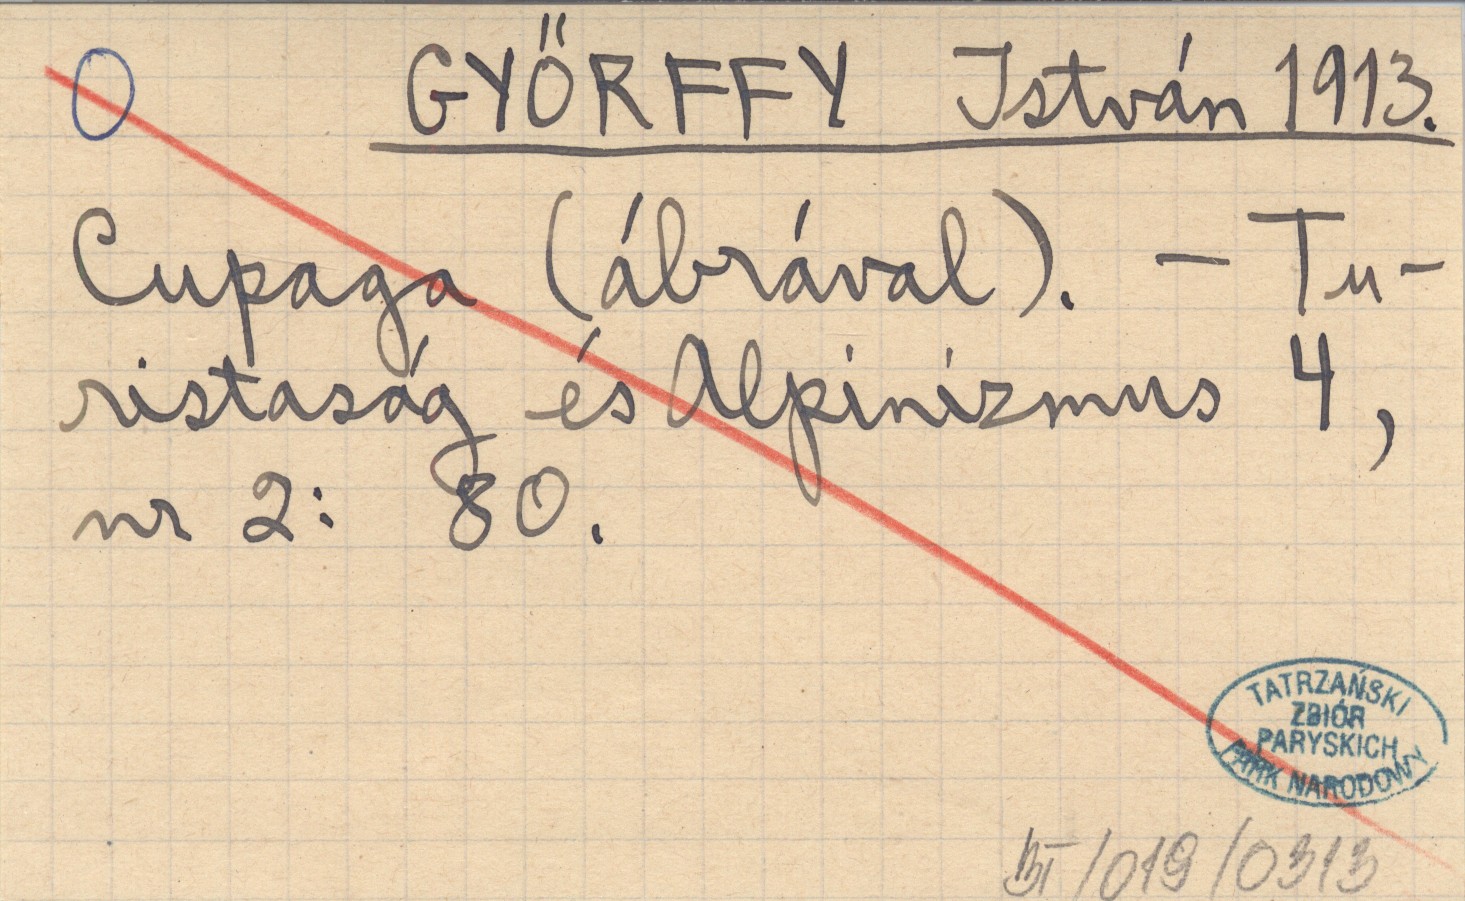 O GYŐRFFY István 1913.
Cupaga (ábrával). – Tu-
ristaság és Alpinizmus 4,
nr 2: 80.
TATRZAŃSKI
ZBIÓR
PARYSKICH
PARK NARODOWY
/019/0313